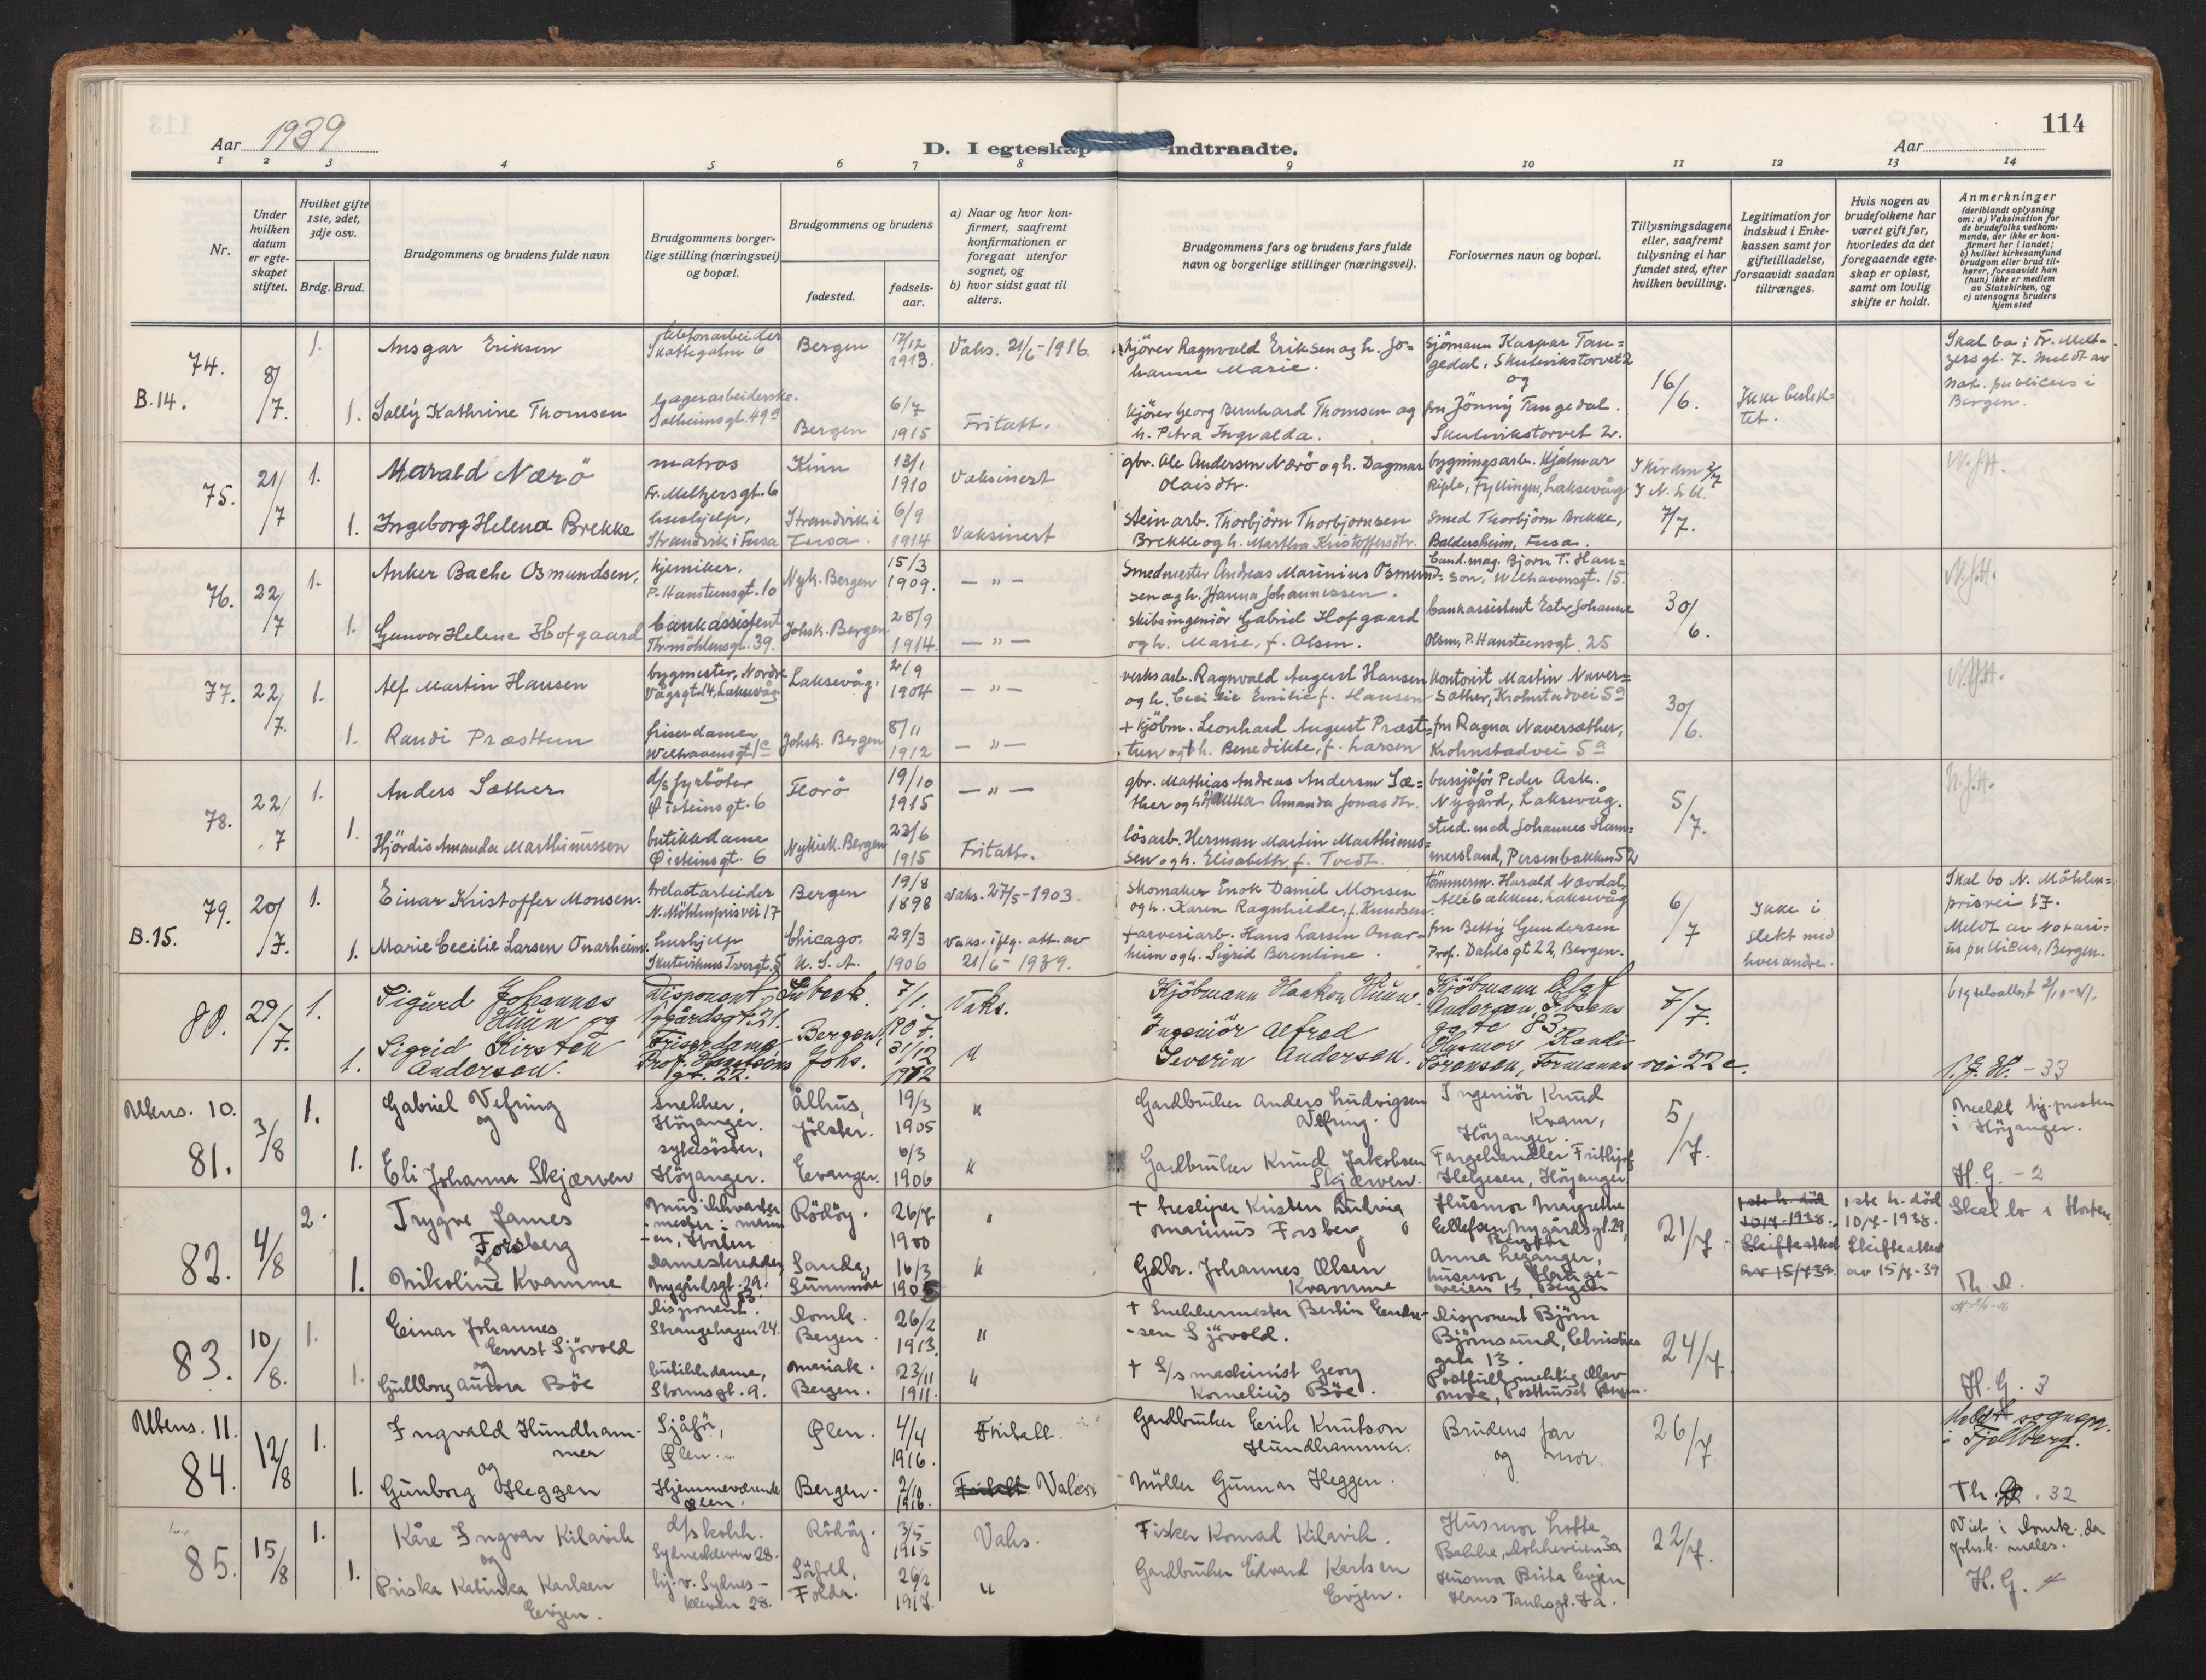 114
Aar 1939
D. I egteskap indtraadte.
Aar
1 2 3 4 5 6 7 8 9 10 11 12 13 14
Nr.
Under hvilken datum er egteskapet stiftet.
Hvilket gifte 1ste, 2det, 3dje osv.
Brdg. Brud.
Brudgommens og brudens fulde navn
Brudgommens borgerlige stilling (næringsvei) og bopæl.
Brudgommens og brudens
fødested.
fødselsaar.
a) Naar og hvor konfirmert, saafremt konfirmationen er foregaat utenfor sognet, og
b) hvor sidst gaat til alters.
Brudgommens fars og brudens fars fulde navn og borgerlige stillinger (næringsvei).
Forlovernes navn og bopæl.
Tillysningsdagene eller, saafremt tillysning ei har fundet sted, efter hvilken bevilling.
Legitimation for indskud i Enkekassen samt for giftetilladelse, forsaavidt saadan tiltrænges.
Hvis nogen av brudefolkene har været gift før, hvorledes da det foregaaende egteskap er opløst, samt om lovlig skifte er holdt.
Anmerkninger
(deriblandt oplysning om: a) Vaksination for de brudefolks vedkommende, der ikke er konfirmert her i landet; b) hvilket kirkesamfund brudgom eller brud tilhører, forsaavidt han (hun) ikke er medlem av Statskirken, og c) utensogns bruders hjemsted
74. B.14. 8/7. 1. Ansgar Eriksen
telefonarbeider Skottegaten 6
Bergen 17/12 1913. Vaks. 21/6-1916.
kjörer Ragnvald Eriksen og h. Johanne Marie.
Sjömann Kaspar Tangedal, Skutevikstorvet 2 og
16/6.
Ikke beslektet.
Skal bo i Fr. Meltzersgt. 7. Meldt av Not. publicus i Bergen.
1. Sally Kathrine Thomsen
Lagerarbeiderske. Solheimsgt. 49a
Bergen 6/7 1915 Fritatt.
kjörer Georg Bernhard Thomsen og h. Petra Ingvalda.
fru Jönny Tangedal. Skutevikstorvet 2.
75. 21/7 1. Harald Nærö
matros Fr. Meltzersgt. 6
Kinn 13/1 1910 Vaksinert
gbr. Ole Andersen Nærö og h. Dagmar Olaisdtr.
bygningsarb. Hjalmar Riple, Fyllingen, Laksevåg
I kirken 2/7 I N. h bl. 7/7.
1. Ingeborg Helena Brekke
hushjelp, Strandvik i Fusa
Strandvik i Fusa. 6/9 1914 Vaksinert
steinarb. Thorbjörn Thorbjornsen Brekke og h. Martha Kristoffersdtr.
Smed Thorbjörn Brekke, Baldersheim, Fusa.
76. 22/7 1. Anker Bache Osmundsen,
kjemiker. P. Hansteensgt. 10
Nyk. Bergen 15/3 1909. — " —
Smedmester Andreas Marinius Osmundsen og h. Hanna Johannessen.
Cand. mag. Bjorn T. Hanson, Welhavensgt. 15.
30/6.
1. Gunvor Helene Hofgaard
bankassistent Thormöhlensgt. 39.
Johsk. Bergen 28/9 1914. — " —
skibsingeniör Gabriel Hofgaard og h. Marie, f. Olsen.
bankassistent Ester Johanne Olsen, P. Hansteensgt. 25
77. 22/7. 1. Alf Martin Hansen
bygmester, Nordre Vågsgt. 14, Laksevåg
Laksevåg. 2/9 1904 — " —
verksarb. Ragnvald August Hansen og h. Cecilie Emilie f. Hansen
kontorist Martin Naversæther, Krohnstadvei 5a
30/6.
1. Randi Præsttun
friserdame Welhavensgt. 1c
Johsk. Bergen 8/11 1912 — " —
+ kjöbm. Leonhard August Præsttun og h. Benedikte, f. Larsen
fru Ragna Naversæther, Krohnstadvei 5a
78. 22/7 1. Anders Sæther
d/s fyrböter Öisteinsgt. 6
Florö 19/10 1915 — " —
gbr. Mathias Andreas Andersen Sæther og h. Hanna Amanda Jonasdtr.
bussjåför Peder Ask. Nygård, Laksevåg.
5/7.
1. Hjördis Amanda Marthinussen
butikkdame Öisteinsgt. 6
Nykirk. Bergen 23/6 1915 Fritatt.
lösarb. Herman Martin Marthinussen og h. Elisabeth, f. Tvedt.
stud. med Johannes Hammersland, Persenbakken 52
79. B.15. 20/7. 1. Einar Kristoffer Monsen.
trelastarbeider N. Möhlenprisvei 17
Bergen 19/8 1898 Vaks. 27/5-1903.
Skomaker Enok Daniel Monsen og h. Karen Ragnhilde, f. Knudsen.
Tömmerm. Harald Novdal, Allébakken, Laksevåg
6/7
Ikke i slekt med hverandre.
Skal bo N. Möhlenprisvei 17. Meldt av Notarius publicus, Bergen.
1. Marie Cecilie Larsen Onarheim.
hushjelp Skutevikens Tverrgt. 5
Chicago. U.S.A. 29/3 1906 Vaks. iflg. att. av 21/6-1939.
farveriarb. Hans Larsen Onarheim og h. Sigrid Berentine.
fru Betty Gundersen Prof. Dahlsgt 22, Bergen.
80. 29/7. 1. Sigurd Johannes Huun og
Disponent, Nygårdsgt. 21.
Lübeck. 7/1. 1907. Vaks.
Kjöbmann Haakon Huun.
Kjöbmann Olaf Andersen, Ibsens gate 83
7/7.
1. Sigrid Kirsten Andersen.
Friserdame Prof. Hansteens gt. 22.
Bergen, Johs. 31/12 1912 "
Ingeniör Alfred Severin Andersen.
Husmor Randi Sörensen, Formanns vei 22 c.
- 33
Utens. 10. 81. 3/8 1. Gabriel Vefring og
snekker, Höyanger.
Ålhus, Jölster. 19/3 1905 "
Gardbruker Anders Ludvigsen Vefring.
Ingeniör Knud Kvam, Höyanger.
5/7.
Meldt sg. presten i Höyanger.
1. Eli Johanna Skjærven
sykesöster, Höyanger.
Evanger. 6/3 1906 "
Gardbruker Knud Jakobsen Skjærven.
Fargehandler Frithjof Helgesen, Höyanger
H. G. - 2
82. 4/8 2. Trygve James Forsberg og
Musikkvaktmester i marinen, Horten
Rödöy. 26/7 1900 "
+ tresliper Kristen Ludvig Marinus Forsberg
Husmor Margrethe Ellefsen, Nygårdsgt. 29, Bergen
21/7
1ste h. död 10/7-1938. Skifteattest av 15/7 39.
1ste h. död 10/7-1938. Skifteattest av 15/7-39
Skal bo i Horten
1. Nikoline Kvamme
Dameskredder, Nygårdsgt. 29.
Sande, Sunnmöre 16/3 1905 "
Gdbr. Johannes Olsen Kvamme
Anna Leganger, husmor, Haugeveien 13, Bergen
83. 10/8. 1. Einar Johannes Ernst Sjövold og
Disponent. Strangehagen 24.
Domk. Bergen. 26/2 1913. "
+ Snekkermester Bertin Endresen Sjövold.
Disponent Björn Björnsund, Christies gate 13.
24/7
1. Gullborg Aurora Böe
butikkdame, Stormsgt. 9.
Mariak. Bergen. 23/11 1911. "
+ D/s maskinist Georg Kornelius Böe.
H. G. 3
Utens. 11. 84. 12/8 1. Ingvald Hundhammer og
Sjåför, Ølen.
Ølen. 4/4 1916. Fritatt.
Gardbruker Erik Knutson Hundhammer.
Brudens far og mor.
26/7
Meldt sognepr. i Fjellberg.
1. Gunborg Heggen
Hjemmeværende Ølen.
Bergen. 2/10 1916. Fritatt
Möller Gunnar Heggen.
32
85. 15/8 1. Kåre Ingvar Kilavik og
d/s kokk. Sydneskleven 28.
Rödöy. 3/5 1915 Vaks.
Fisker Konrad Kilavik.
Husmor Lotte Bakke,
22/7.
Viet i Domk. da Johsk. males.
1. Priska Katinka Karlsen Evjen.
hj. v. Sydneskleven 28.
Sörfold, Folda. 26/2 1917. "
Gardbruker Edvard Karlsen Evjen.
Husmor Brita Evjen Hans Tanksgt. 7a.
H. G. 4